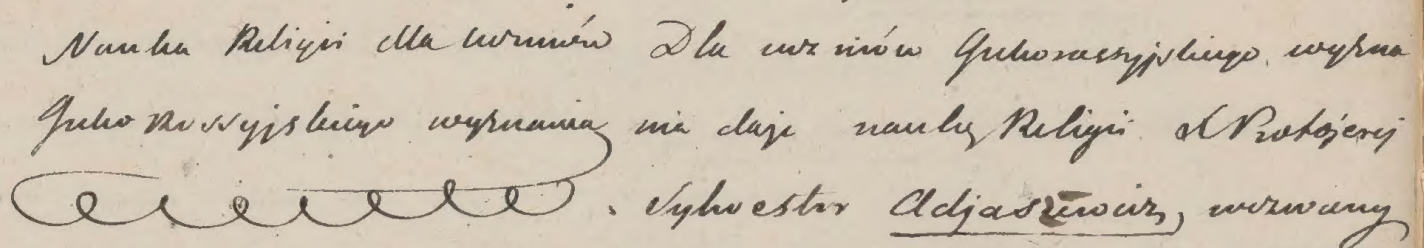 Nauka Religii dla uczniów Dla uczniów Grekorossyjskiego wyzna
Greko Rossyjskiego wyznania nia daje naukę Religii X Protojerej
Sylwester Adjaszewicz, wezwany